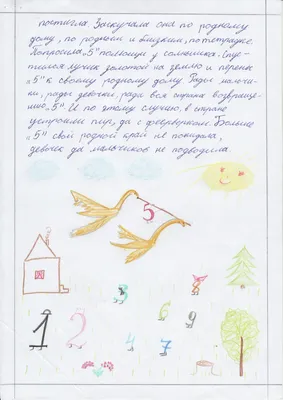 постигла. Заскучала она по родному
дому, по родным и близким, по тетрадке.
Попросила „5" помощи у солнышка. Спус-
тился лучик золотой на землю и перенёс
„5" к своему родному дому. Рады мальчи-
ки, рады девочки, рада вся страна возвраще-
нию „5". И по этому случаю, в стране
устроили пир, да с фейерверком. Больше
„5" свой родной край не покидала,
девочек да мальчиков не подводила.
5
3
9
1 2 4 7